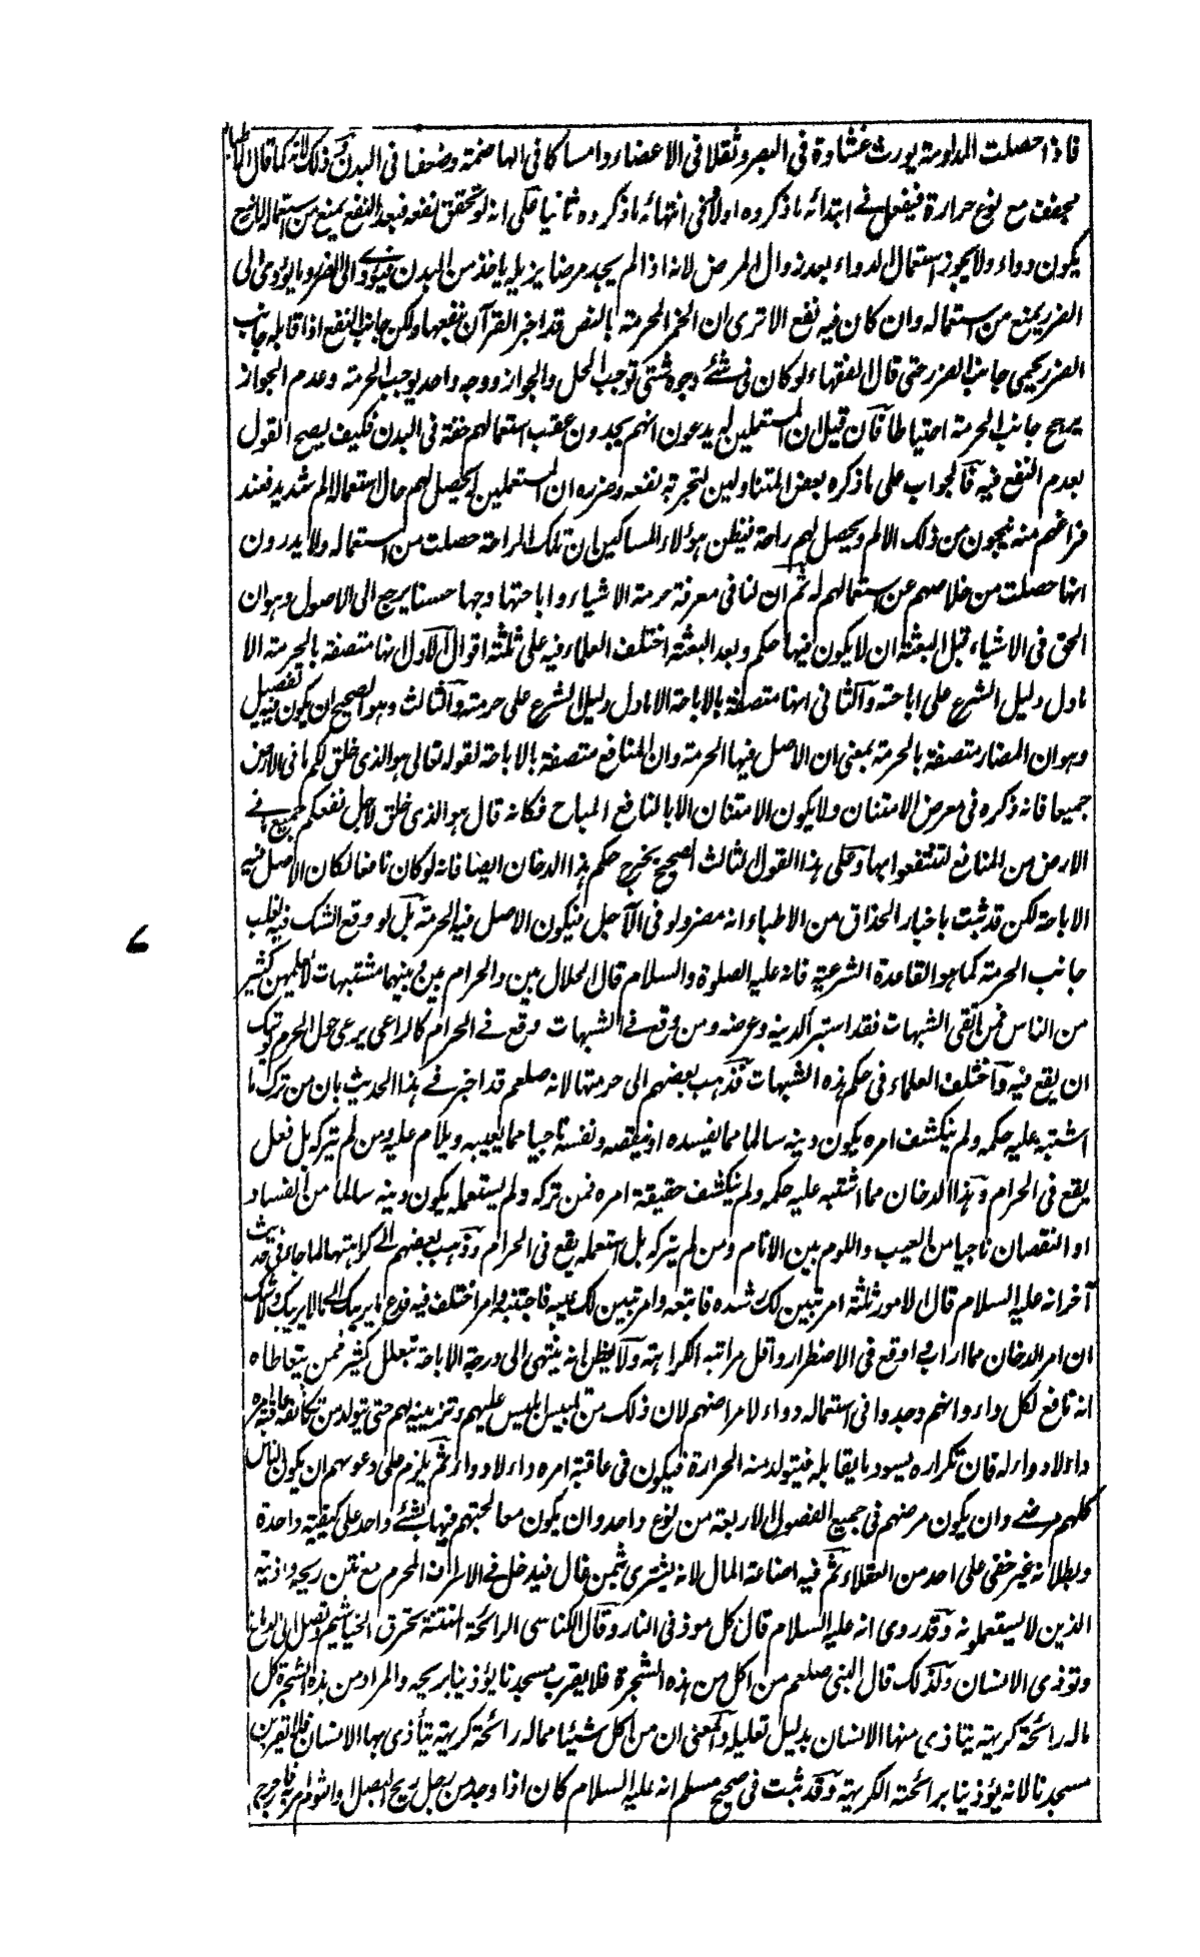 فاذا حصلت المداومة يورث غشاوة فى البصر وثقلا فى الاعضاء وامساكا فى الهاضمة وضعفا فى البدن وذلك لانه كما قال الاطباء
مجفف مع نوع حرارة فيفعل فى ابتدائه ما ذكروه اولا وفى انتهائه ما ذكروه ثانيا على انه لو تحقق نفعه فبعد النفع يمنع من استعماله لانه ح
يكون دواء ولا يجوز استعمال الدواء بعد زوال المرض لانه اذا لم يجد مرضا يزيله ياخذ من البدن فيؤدى الى الضرر وما يؤدى الى
الضرر يمنع من استعماله وان كان فيه نفع الا ترى ان الخمر المحرمة بالنص قد اخبر القرآن بنفعها ولكن جانب النفع اذا قابله جانب
الضرر يحمى جانب الضرر حتى قال الفقهاء لو كان فى شئ وجوه شتى توجب الحل والجواز ووجه واحد يوجب الحرمة وعدم الجواز
يرجح جانب الحرمة احتياطا فان قيل ان المستعملين له يدعون انهم يجدون عقب استعمالهم خفة فى البدن فكيف يصح القول
بعدم النفع فيه فالجواب على ما ذكره بعض المتناولين لتجربة نفعه وضرره ان المستعملين له يحصل لهم حال استعماله الم شديد فعند
فراغهم منه ينجون من ذلك الالم ويحصل لهم راحة فيظن هؤلاء المساكين ان تلك الراحة حصلت من استعماله ولا يدرون
انها حصلت من خلاصهم عن استعمالهم له ثم ان لنا فى معرفة حرمة الاشياء واباحتها وجها حسنا يرجع الى الاصول وهو ان
الحق فى الاشياء قبل البعثة ان لا يكون فيها حكم وبعد البعثة اختلف العلماء فيه على ثلثة اقوال الاول انها متصفة بالحرمة الا
ما دل دليل الشرع على اباحته والثانى انها متصفة بالاباحة الا ما دل دليل الشرع على حرمته والثالث وهو الصحيح ان يكون فيه تفصيل
وهو ان المضار متصفة بالحرمة بمعنى ان الاصل فيها الحرمة وان المنافع متصفة بالاباحة لقوله تعالى هو الذى خلق لكم ما فى الارض
جميعا فانه ذكره فى معرض الامتنان ولا يكون الامتنان الا بالنافع المباح فكانه قال هو الذى خلق لاجل نفعكم جميع ما فى
الارض من المنافع لتنتفعوا بها وعلى هذا القول الثالث الصحيح يخرج حكم هذا الدخان ايضا فانه لو كان نافعا لكان الاصل فيه
الاباحة لكن قد ثبت باخبار الحذاق من الاطباء انه مضر ولو فى الآجل فيكون الاصل فيه الحرمة بل لو وقع الشك فيه يغلب
جانب الحرمة كما هو القاعدة الشرعية فانه عليه الصلوة والسلام قال الحلال بين والحرام بين وبينهما مشتبهات لا يعلمهن كثير
من الناس فمن اتقى الشبهات فقد استبرأ لدينه وعرضه ومن وقع فى الشبهات وقع فى الحرام كالراعى يرعى حول الحرم يوشك
ان يقع فيه واختلف العلماء فى حكم هذه الشبهات فذهب بعضهم الى حرمتها لانه صلعم قد اخبر فى هذا الحديث بان من ترك ما
اشتبه عليه حكمه ولم ينكشف امره يكون دينه سالما مما يفسده او ينقصه ونفسه ناجيا مما يعيبه ويلام عليه ومن لم يتركه بل فعل
يقع فى الحرام وهذا الدخان مما اشتبه عليه حكمه ولم ينكشف حقيقة امره فمن تركه ولم يستعمله يكون دينه سالما من الفساد
او النقصان ناجيا من العيب واللوم بين الانام ومن لم يتركه بل استعمله يقع فى الحرام وذهب بعضهم الى كراهتها لما جاء فى حديث
آخر انه عليه السلام قال الامور ثلثة امر تبين لك رشده فاتبعه وامر تبين لك غيه فاجتنبه وامر اختلف فيه فدع ما يريبك الى ما لا يريبك ولا شك
ان امر الدخان مما اراب واوقع فى الاضطرار واقل مراتبه الكراهة ولا يظن انه ينتهى الى درجة الاباحة بتعلل كثير فمن يتعاطاه
انه نافع لكل داء وانهم وجدوا فى استعماله دواء لامراضهم لان ذلك من تلبيس ابليس عليهم وتزيينه لهم حتى يتولد من عاقبة امره
داء لا دواء له فان تكراره يسود ما يقابله فيتولد منه الحرارة فيكون فى عاقبة امره داء لا دواء ثم يلزم على دعوىهم ان يكون الناس
كلهم مرضى وان يكون مرضهم فى جميع الفصول الاربعة من نوع واحد وان يكون معالجتهم فيها بشئ واحد على كيفية واحدة
وبطلانه غير خفى على احد من العقلاء ثم فيه اضاعة المال لانه يشترى بثمن غال فيدخل فى الاسراف المحرم مع نتن ريحه واذية
الذين لا يستعملونه وقد روى انه عليه السلام قال كل موذ فى النار وقال الكناسى الرائحة المنتنة تحرق الخياشيم وتصل الى الدماغ
وتوذى الانسان ولذلك قال النبى صلعم من اكل من هذه الشجرة فلا يقرب مسجدنا يؤذينا بريحه والمراد من هذه الشجرة كل
ما له رائحة كريهة يتأذى منها الانسان بدليل تعليله والمعنى ان من اكل شيئا مما له رائحة كريهة يتأذى بها الانسان فلا يقربن
مسجدنا لانه يؤذينا برائحته الكريهة وقد ثبت فى صحيح مسلم انه عليه السلام كان اذا وجد من رجل ريح البصل والثوم امر به فاخرج